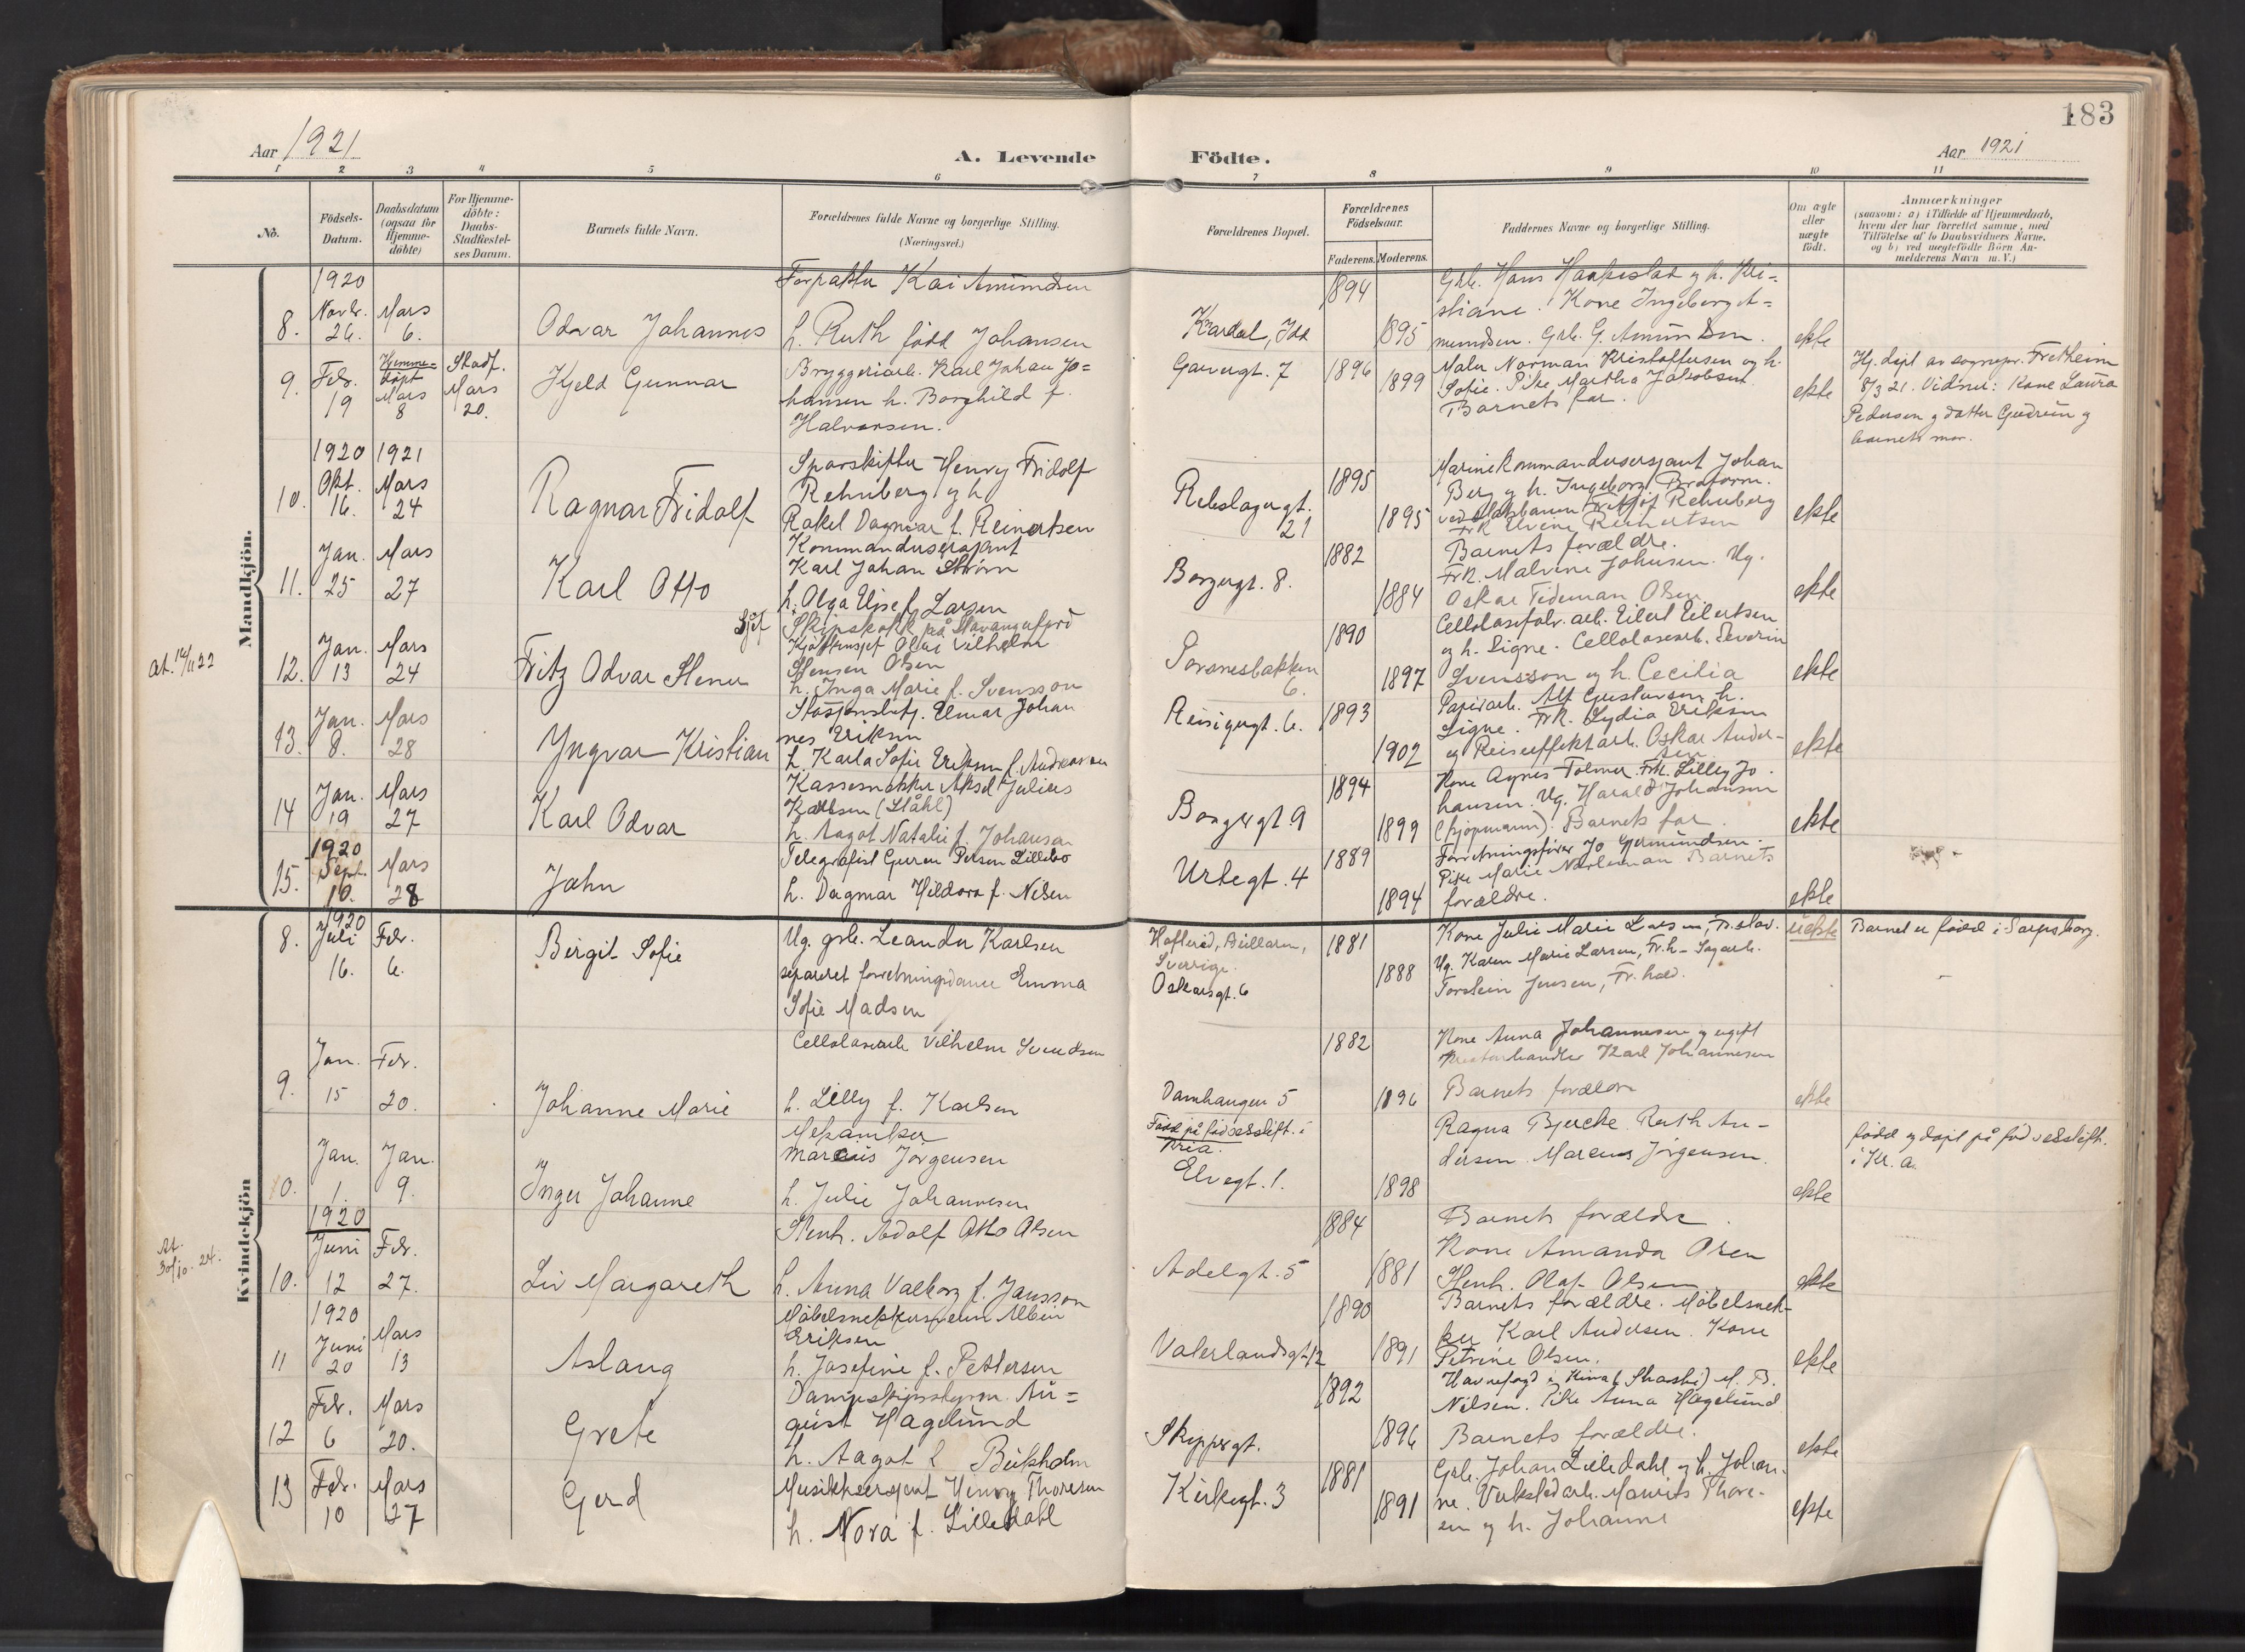 183
Aar 1921
A. Levende
Födte.
Aar 1921
1 2 3 4 5 6 7 8 9 10 11
No.
Födsels-
Datum.
Daabsdatum
(ogsaa for
Hjemme-
döbte)
For Hjemme-
döbte:
Daabs-
Stadfæstel-
ses Datum.
Barnets fulde Navn.
Forældrenes fulde Navne og borgerlige Stilling.
(Næringsvei.)
Forældrenes Bopæl.
Forældrenes
Födselsaar.
Faderens. Moderens.
Faddernes Navne og borgerlige Stilling.
Om ægte
eller
uægte
födt.
Anmærkninger
(saasom: a) i Tilfælde af Hjemmedaab,
hvem der har forrettet samme, med
Tilföielse af to Daabsvidners Navne,
og b) ved uægtefödte Börn An-
melderens Navn m. V.)
Mandkjön.
8.
1920
Novbr.
26.
Mars
6.
Odvar Johannes
Forpakter Kai Amundsen
h. Ruth född Johansen
Idd
1894
1895
Grb. Hans og h. Kri-
stiane. Kone Ingeborg A-
mundsen. Grb. G. Amundsen.
ekte
9.
Febr.
19
Hjemme-
döpt
Mars
8
Stadf.
Mars
20.
Kjeld Gunnar
Bryggeriarb. Karl Johan Jo=
hansen h. Borghild f.
Halvorsen.
Garvergt. 7
1896
1899
Maler Norman Kristoffersen og h.
Sofie. Pike Martha Jakobsen
Barnets far.
ekte
Hj. döpt av sognepr. Fretheim
8/3 21. Vidner: Kone Laura
Pedersen og datter Gudrun og
barnets mor.
10.
1920
Okt.
16.
1921
Mars
24
Ragnar Fridolf
Sporskifter Henry Fridolf
Rehnberg og h
Rakel Dagmar f. Reinertsen
Rebslagergt.
21
1895
1895
Marinekommandersersjant Johan
Berg og h. Ingeborg.
Rehnberg
Reinertsen
ekte
11.
Jan.
25
Mars
27
Karl Otto
Kommandersersjant
Karl Johan Ström
h. Olga Elise f. Larsen
Borgergt. 8.
1882
1884
Barnets forældre.
Frk. Malvine Johnsen. Ug.
Oskar Tideman Olsen
ekte
At. 14/11 22
12.
Jan.
13
Mars
24
Fritz Odvar Stener
Sjöf
Skipskokk på Stavangerfjord
Olai Vilhelm
Stensen Olsen
h. Inga Marie f. Svensson
Torsnesbakken
6.
1890
1897
Cellulosefabr. arb. Eilert Eilertsen
og h. Signe. Cellulosearb. Severin
Svensson og h. Cecilia
ekte
13.
Jan.
8.
Mars
28
Yngvar Kristian
Stasjonsbetj. Elmar Johan
nes Eriksen
h. Karla Sofie Eriksen f. Andreassen
Reisigergt. 6.
1893
1902
Papirarb. Alf Gustavsen h.
Signe. Frk. Lydia Eriksen
og Reiseeffektarb. Oskar Ander-
sen
ekte
14
Jan.
19
Mars
27
Karl Odvar
Kassesnekker Aksel Julius
Karlsen (Ståhl)
h. Aagot Natalie f. Johansen
Borgergt. 9
1894
1899
Kone Agnes Folmer. Frk. Lilly Jo-
hansen. Ug. Harald Johansen
(kjöpmann). Barnets far.
ekte
15.
1920
Sept.
10.
Mars
28
John
Telegrafist Person Lillebo
h. Dagmar Hildora f. Nilsen
Urtegt. 4
1889
1894
Forretningsförer Jo Gjermundsen.
Pike Marie Barnets
forældre.
ekte
Kvindekjön
8.
1920
Juli
16.
Febr.
6.
Birgit Sofie
Ug. grb. Leander Karlsen
separeret forretningsdame Emma
Sofie Madsen
Sverige.
Oskarsgt. 6
1881
1888
Kone Julie Marie Larsen, Fr.stad.
Ug. Karen Marie Larsen, Fr.h - Sagarb.
Torstein Jensen, Fr. hald.
uekte
Barnet er född i Sarpsborg.
9.
Jan.
15
Febr.
20.
Johanne Marie
Cellulosearb Vilhelm Svendsen
h. Lilly f. Karlsen
Damhaugen 5
1882
1896
Kone Anna Johannesen og ugift
Karl Johannesen
Barnets forældre
ekte
10.
Jan.
1.
Jan.
9.
Inger Johanne
Mekaniker
Marcus Jörgensen
h. Julie Johannesen
Född på födselsstift. i
Kria.
Elvegt. 1.
1898
Ragna Bjercke. Ruth An-
dersen. Marcus Jörgensen.
ekte
född og döpt på födselsstift.
i Kr. a.
At.
30/10. 24.
10.
1920
Juni
12
Febr.
27.
Liv Margareth
Stenh. Adolf Otto Olsen
h. Anna Valborg f. Jansson
Adelgt. 5
1884
1881
Barnets forældre.
Kone Amanda Olsen
Stenh. Olaf Olsen
ekte
11
1920
Juni
20
Mars
13
Aslaug
Albin
Eriksen
h. Josefine f. Pettersen
Vaterlandsgt. 12
1890
1891
Barnets forældre. Möbelsnek-
ker Karl Andersen. Kone
Petrine Olsen.
ekte
12
Febr.
6
Mars
20.
Grete
Dampskipsstyrm. Au=
gust Hagelund
h. Aagot f. Bükholm
Skippergt.
1892
1896
Havnefogd i Kina M. B.
Nilsen. Pike Anna Hagelund
Barnets forældre.
ekte
13
Febr.
10
Mars
27
Gerd
Musikksersjant Henry Thoresen
h. Nora f. Lilledahl
Kirkegt. 3
1881
1891
Grb. Johan Lilledahl og h. Johan-
ne. Verkstedarb. Maurits Thore-
sen og h. Johanne
ekte